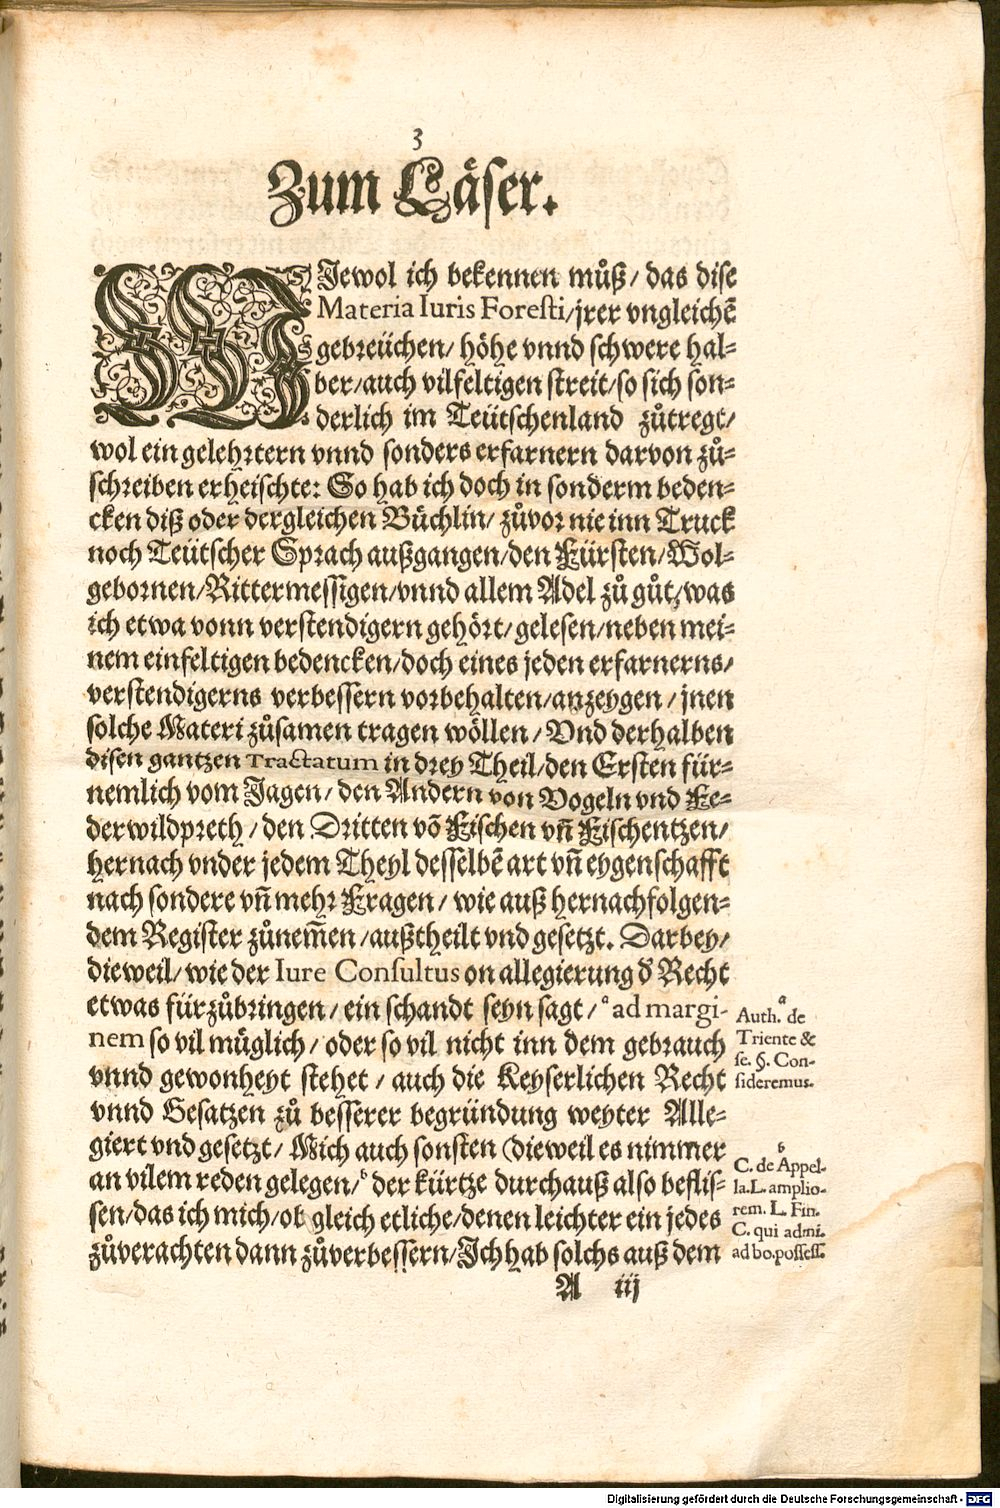 3
Zum Läser.
WIewol ich bekennen můß/ das dise
Materia Iuris Foresti/ jrer vngleichē
gebreüchen/ höhe vnnd schwere hal-
ber/ auch vilfeltigen streit/ so sich son-
derlich im Teütschenland zůtregt/
wol ein gelehrtern vnnd sonders erfarnern darvon zů-
schreiben erheischte: So hab ich doch in sonderm beden-
cken diß oder dergleichen Büchlin/ zůvor nie inn Truck
noch Teütscher Sprach außgangen/ den Fürsten/ Wol-
gebornen/ Rittermessigen/ vnnd allem Adel zů gůt/ was
ich etwa vonn verstendigern gehört/ gelesen/ neben mei-
nem einfeltigen bedencken/ doch eines jeden erfarnerns/
verstendigerns verbessern vorbehalten/ anzeygen/ jnen
solche Materi zůsamen tragen wöllen/ Vnd derhalben
disen gantzen Tractatum in drey Theil/ den Ersten für-
nemlich vom Jagen/ den Andern von Vogeln vnd Fe-
derwildpreth/ den Dritten vō Fischen vn̄ Fischentzen/
hernach vnder jedem Theyl desselbē art vn̄ eygenschafft
nach sondere vn̄ mehr Fragen/ wie auß hernachfolgen-
dem Register zůnem̄en/ außtheilt vnd gesetzt. Darbey/
dieweil/ wie der Iure Consultus on allegierung d' Recht
etwas fürzůbringen/ ein schandt seyn sagt/ a ad margi-
nem so vil müglich/ oder so vil nicht inn dem gebrauch
vnnd gewonheyt stehet/ auch die Keyserlichen Recht
vnnd Gesatzen zů besserer begründung weyter Alle-
giert vnd gesetzt/ Mich auch sonsten (dieweil es nimmer
an vilem reden gelegen/ b der kürtze durchauß also beflis-
sen/ das ich mich/ ob gleich etliche/ denen leichter ein jedes
zůverachten dann zůverbessern/ Ich hab solchs auß dem
a
Auth. de
Triente &
se. §. Con-
sideremus.
b
C. de Appel-
la. L. amplio-
rem. L. Fin.
C. qui admi.
ad bo. possess.
A iij
Digitalisierung gefördert durch die Deutsche Forschungsgemeinschaft - DFG